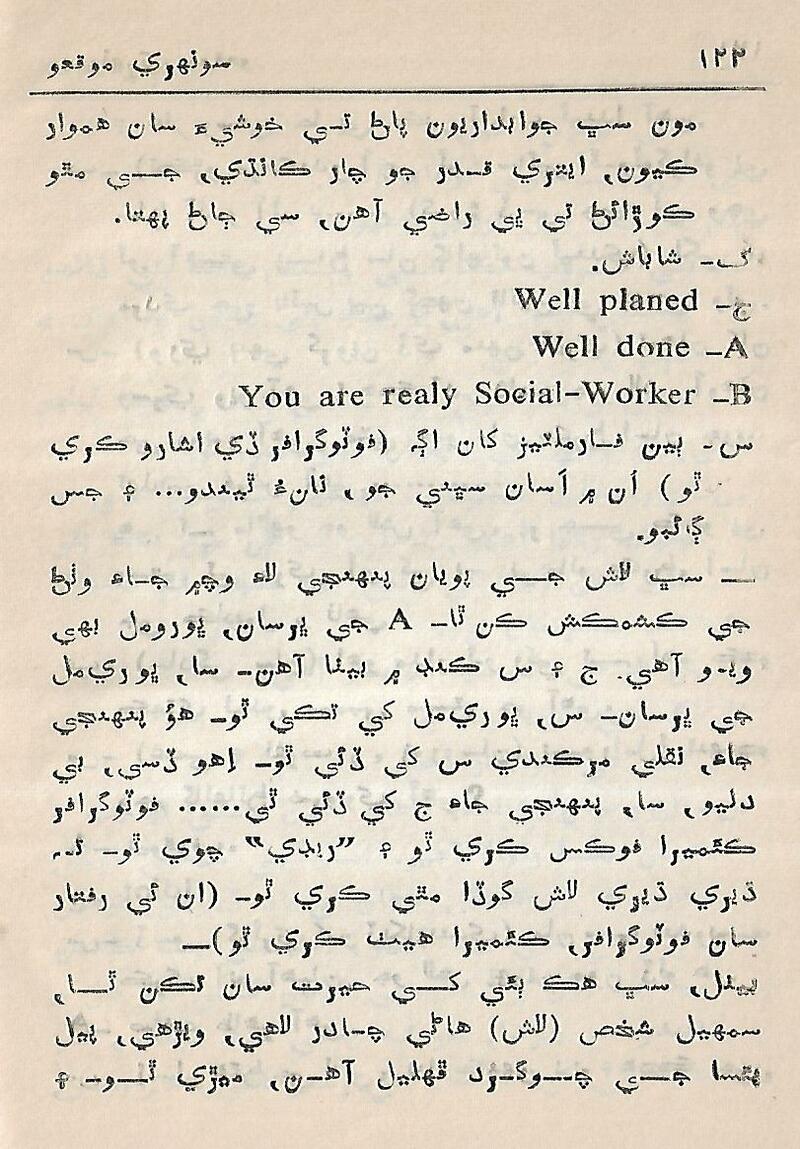 ۱۲۲ سونهري موقعو
مون سڀ جوابداريون پاڻ تي خوشيءَ سان هموار
ڪيون، ايتري قدر جو چار ڪانڌي، جي مٿو
ڪوڙائڻ تي پي راضي آهن، سي ڄاڻ پهتا.
گ- شاباش.
ج- Well planed
A- Well done
B- You are realy Social-Worker
س- ٻين فارملٽيز کان اڳ (فوٽوگرافر ڏي اشارو ڪري
ٿو) اُن ۾ اَسان سڀني جو، نانءُ ٿيندو... ۽ جس
ڳائبو.
— سڀ لاش جي پويان پنهنجي لاءِ وچ۾ جاءِ وٺڻ
جي ڪشمڪش ڪن ٿا- A جي ڀرسان، ڀورومل بهي
ويو آهي. ج ۽ س ڪنڊ ۾ بيٺا آهن- سا، ڀوريمل
جي ڀرسان- س، ڀوريمل کي تڪي ٿو- هوُ پنهنجي
جاءِ، نقلي مرڪندي س کي ڏئي ٿو- اِهو ڏسي، بي
دليو، سا، پنهنجي جاءِ ج کي ڏئي ٿي...... فوٽوگرافر
ڪئميرا فوڪس ڪري ٿو ۽ ”ريڊي“ چوي ٿو- تہ
ڌيري ڌيري لاش گوڏا مٿي ڪري ٿو- (ان ئي رفتار
سان فوٽوگرافر، ڪئميرا هيٺ ڪري ٿو)—
بيٺل، سڀ هڪ ٻئي کي حيرت سان تڪن ٿا،
سمهيل شخص (لاش) هاڻي چادر لاهي، ويڙهي، پيل
پئسا جي چوگرد ڦهليل آهن، ميڙي ٿو- ۽